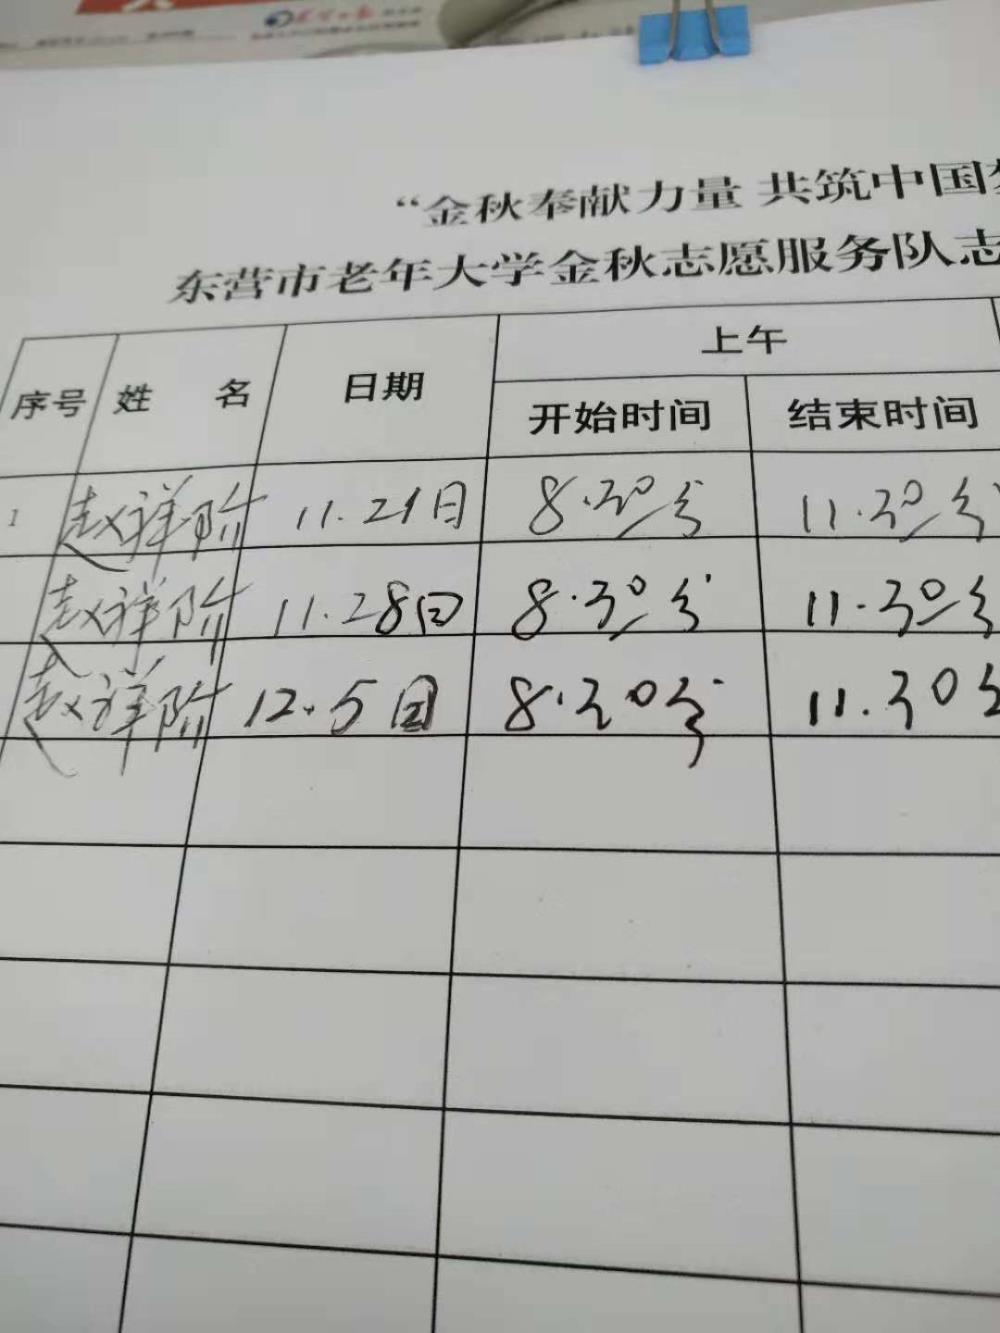 “金秋奉献力量 共筑中国梦
东营市老年大学金秋志愿服务队志
序号 姓 名 日期 上午
开始时间 结束时间
1 赵祥阶 11.21日 8.30分 11.30分
赵祥阶 11.28日 8.30分 11.30分
赵祥阶 12.5日 8.30分 11.30分